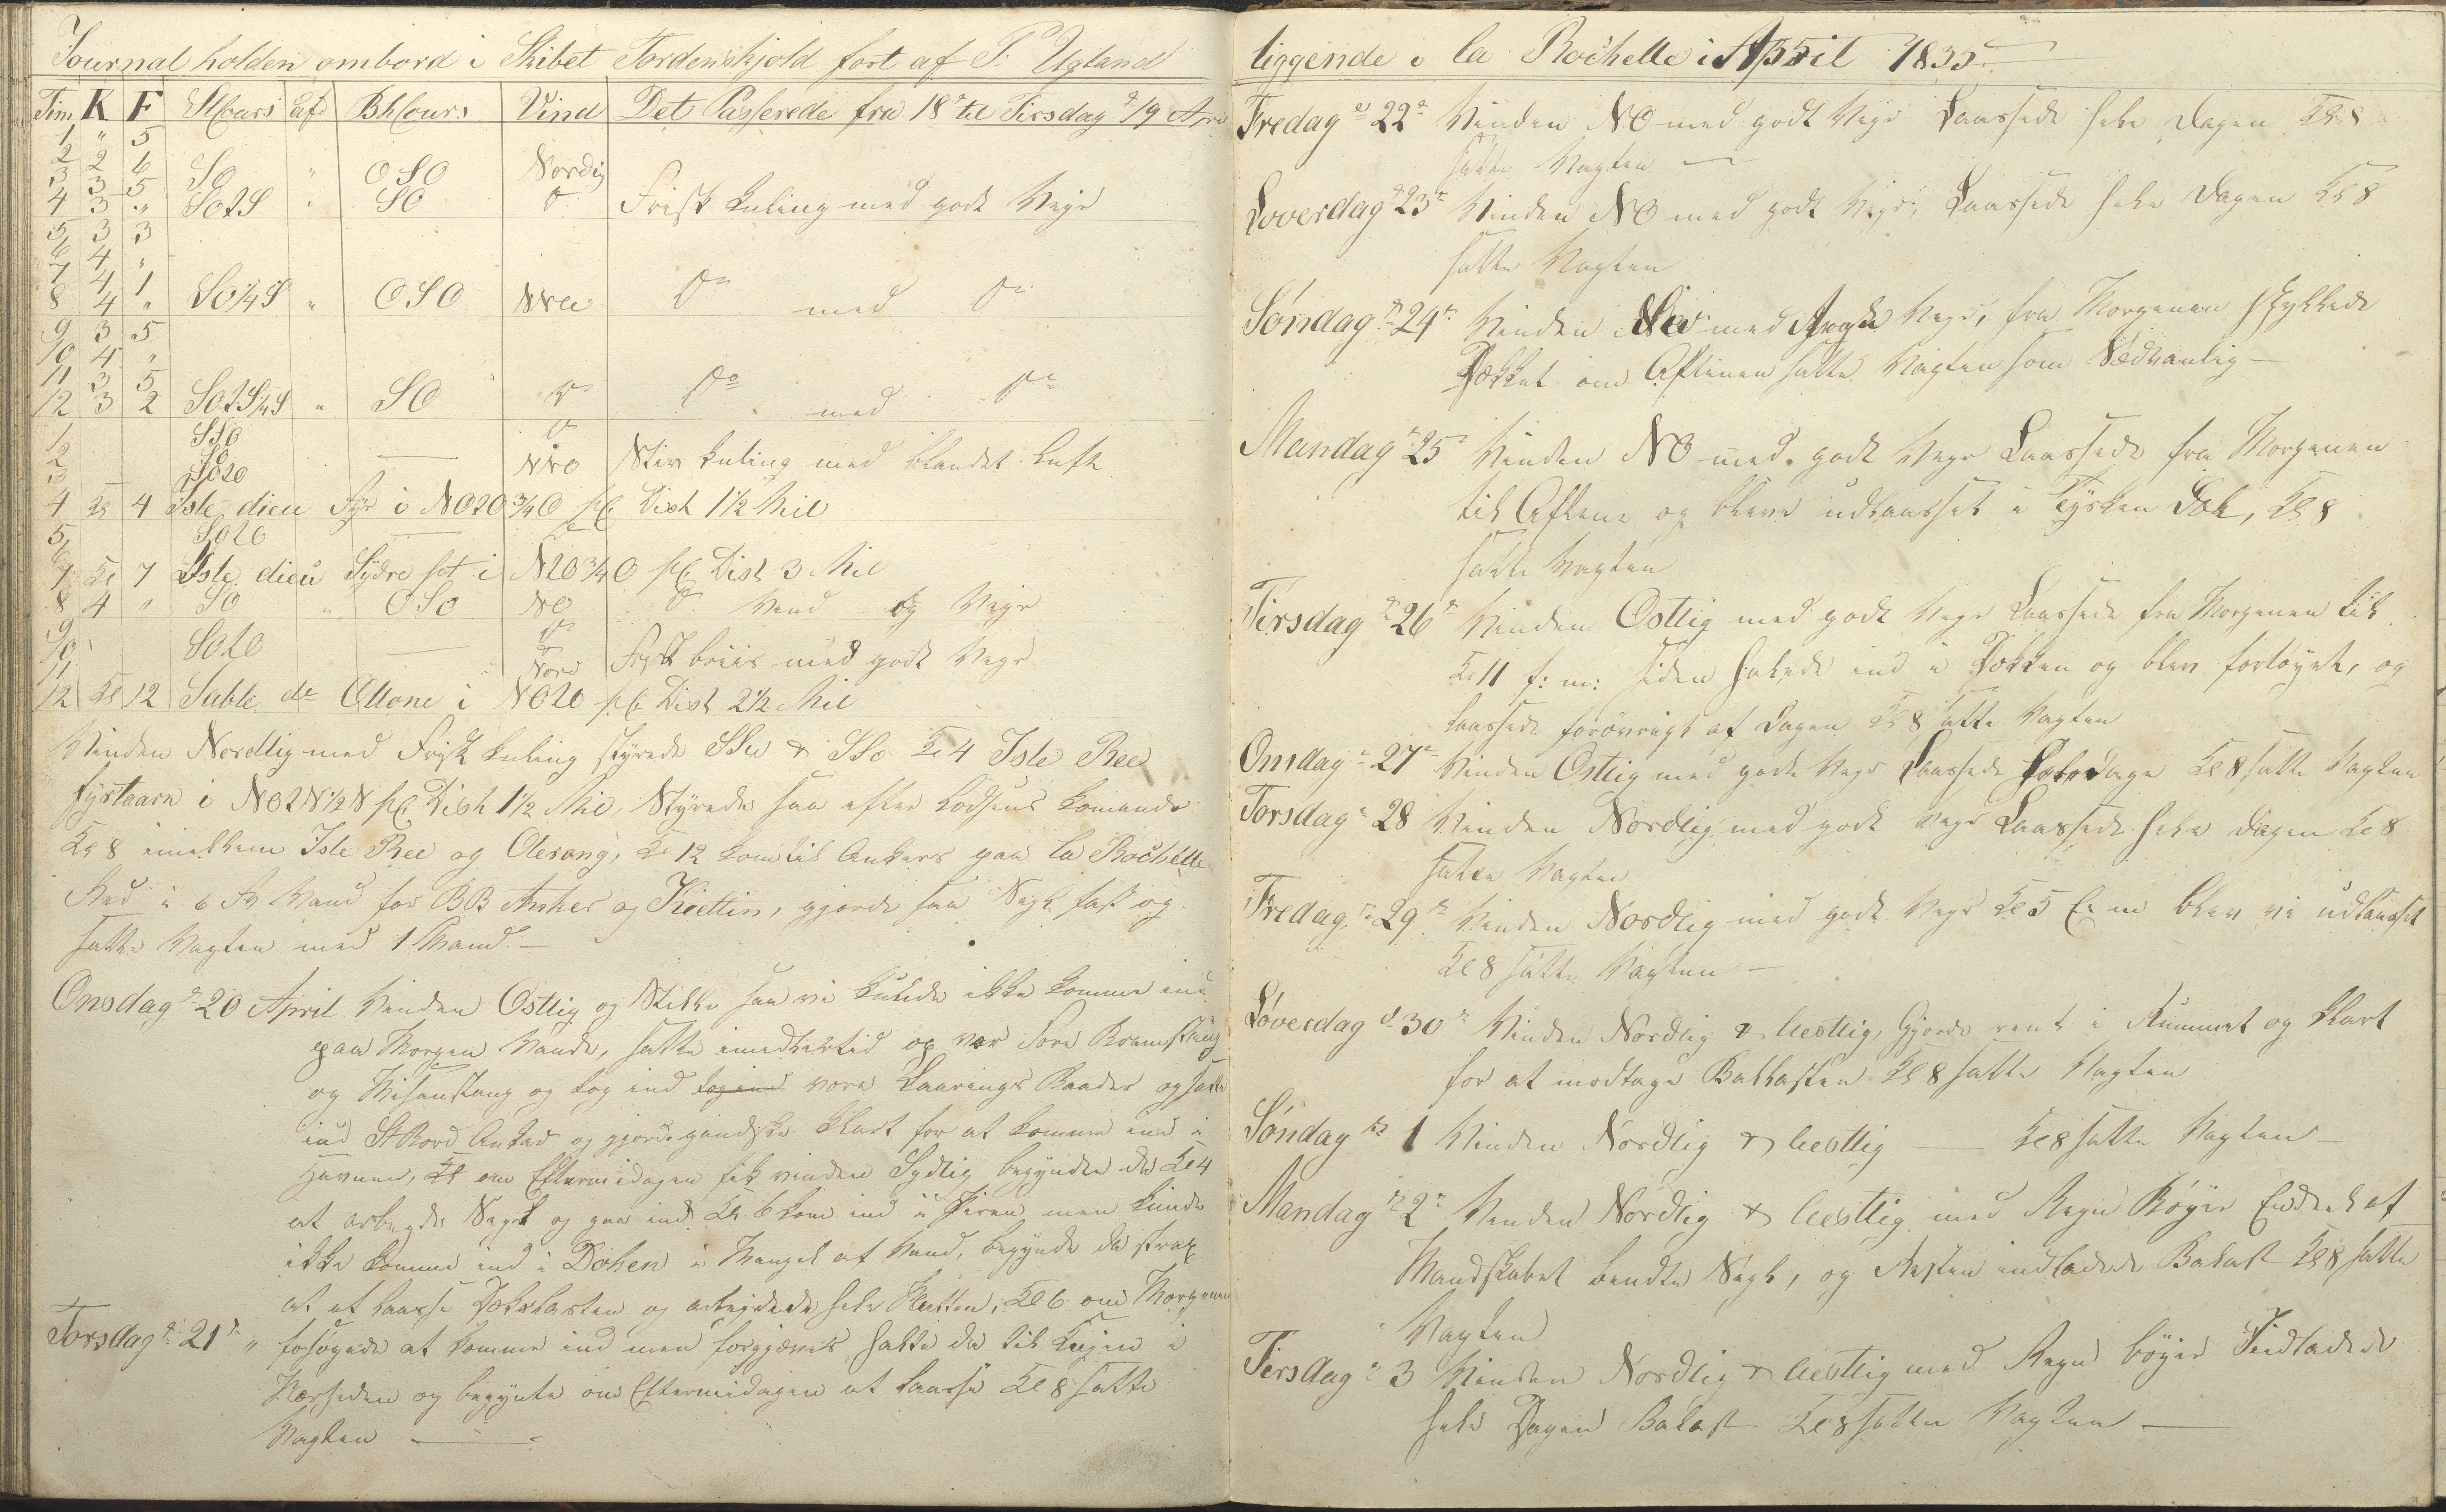 Journal holden ombord i Skibet Tordenskjold ført af T. Ugland
Tim K F St Cours afd Bh Cours Vind Det Passerede fra 18de til Tirsdag d 19 Apri
1 " 5
2 2 6 SO " OSO Nordig
3 3 5
4 3 " SOtS " SO do Frisk Kuling med godt Vejr
5 3 3
6 4 "
7 4 1
8 4 " SO¼S " OSO NNW do med do
9 3 5
10 4 "
11 3 5
12 3 2 SOtS¼S " SO do do med do
1 SSO do
2 SO NNO Stiv Kuling med blandet Luft
3 SOtO
4 Kl 4 Isle dieu Fyr i NOtO¾O pC Dist 1½ Mil
5 SOtO
6
7 Kl 7 Isle dieu Sydre pt i NtO¾O pC Dist 3 Mil
8 4 " SO " OSO NO do Vind og Vejr
9 do
10 SOtO do
11 Nord Frisk briis med godt Vejr
12 Kl 12 Sable de Ollone i NOtO pC Dist 2½ Mil
Vinden Nordlig med Frisk Kuling styrede SSW & SSO Kl 4 Isle Ree
fyrtaarn i NOtN½N pC Dist 1½ Mil, Styrede saa efter Lodsens Komando
Kl 8 imellem Isle Ree og Olerong, Kl 12 kom til Ankers paa la Rochelle
Red i 6 Fv Vand for BB Anker og Kiettin, gjorde saa Segl fast og
satte Vagten med 1 Mand.
Onsdag d 20 April Vinden Ostlig og Stille saa vi kunde ikke komme ind
paa Morgen Vande, satte imedlertid op vor Fore Bramstang
og Mesanstang og tog ind tog ind vore Baader og satte
ind St Bord Anker og gjorde gandske klart for at komme ind i
Havnen, Kl om Eftermidagen fik vinden Sydlig begyndte da Kl 4
at arbeyde Segl og gaa ind Kl 6 kom ind i Piren men kunde
ikke komme ind i Doken i Mangel af Vand, begynde da strax
at at laasse Dækslasten og arbejdede hele Natten, Kl 6 om Morgenen
Torsdag d 21de " forsøgede at komme ind men forgjæves halte da til Kejen i
og begynte om Eftermidagen at laasse Kl 8 satte
Vagten
liggende i la Rochelle i April 1835
Fredag d 22de Vinden NO med godt Vejr Laassede hele Dagen Kl 8
satte Vagten
Loverdag d 23de Vinden NO med godt Vejr, Laassede hele Dagen Kl 8
satte Vagten
Søndag d 24de Vinden med Vejr, fra Morgenen skyllede
Dækket om Aftenen satte Vagten som Sædvanlig
Mandag d 25de Vinden NO med godt Vejr Laassede fra Morgenen
til Aftene og bleve udlaasset i Dok, Kl 8
satte Vagten
Tirsdag d 26de Vinden Ostlig med godt Vejr Laassede fra Morgenen til
Kl 11 f: m: siden halede ind i Dokken og blev fortøyet, og
laassede forövrigt af Dagen Kl 8 satte Vagten
Onsdag d 27de Vinden Ostlig med godt Vejr Laassede hele Dage Kl 8 satte Vagten
Torsdag d 28 Vinden Nordlig med godt Vejr Laassede hele Dagen Kl 8
satte Vagten
Fredag d 29de Vinden Nordlig med godt Vejr Kl 5 E: m blev vi udlaasset
Kl 8 satte Vagten
Løverdag d 30te Vinden Nordlig & Westlig, Gjorde rent i Rummet og klart
for at modtage Ballasten Kl 8 satte Vagten
Søndag d 1 Vinden Nordlig & Westlig Kl 8 satte Vagten
Mandag d 2de Vinden Nordlig & Westlig med Regn Bøger Endeel af
Mandskabet bendte Segl, og Resten indladede Balast Kl 8 satte
Vagten
Tirsdag d 3 Vinden Nordlig & Westlig med Regn bøger Indladede
hele Dagen Balast Kl 8 satte Vagten